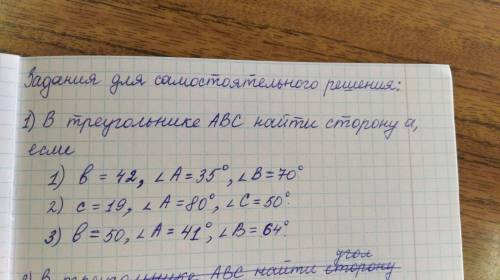 Задания для самостоятельного решения:
1) В треугольнике ABC найти сторону a,
если
1) b = 42, ∠A = 35°, ∠B = 70°
2) c = 19, ∠A = 80°, ∠C = 50°.
3) b = 50, ∠A = 41°, ∠B = 64°.
угол
2) В треугольнике ABC найти сторону